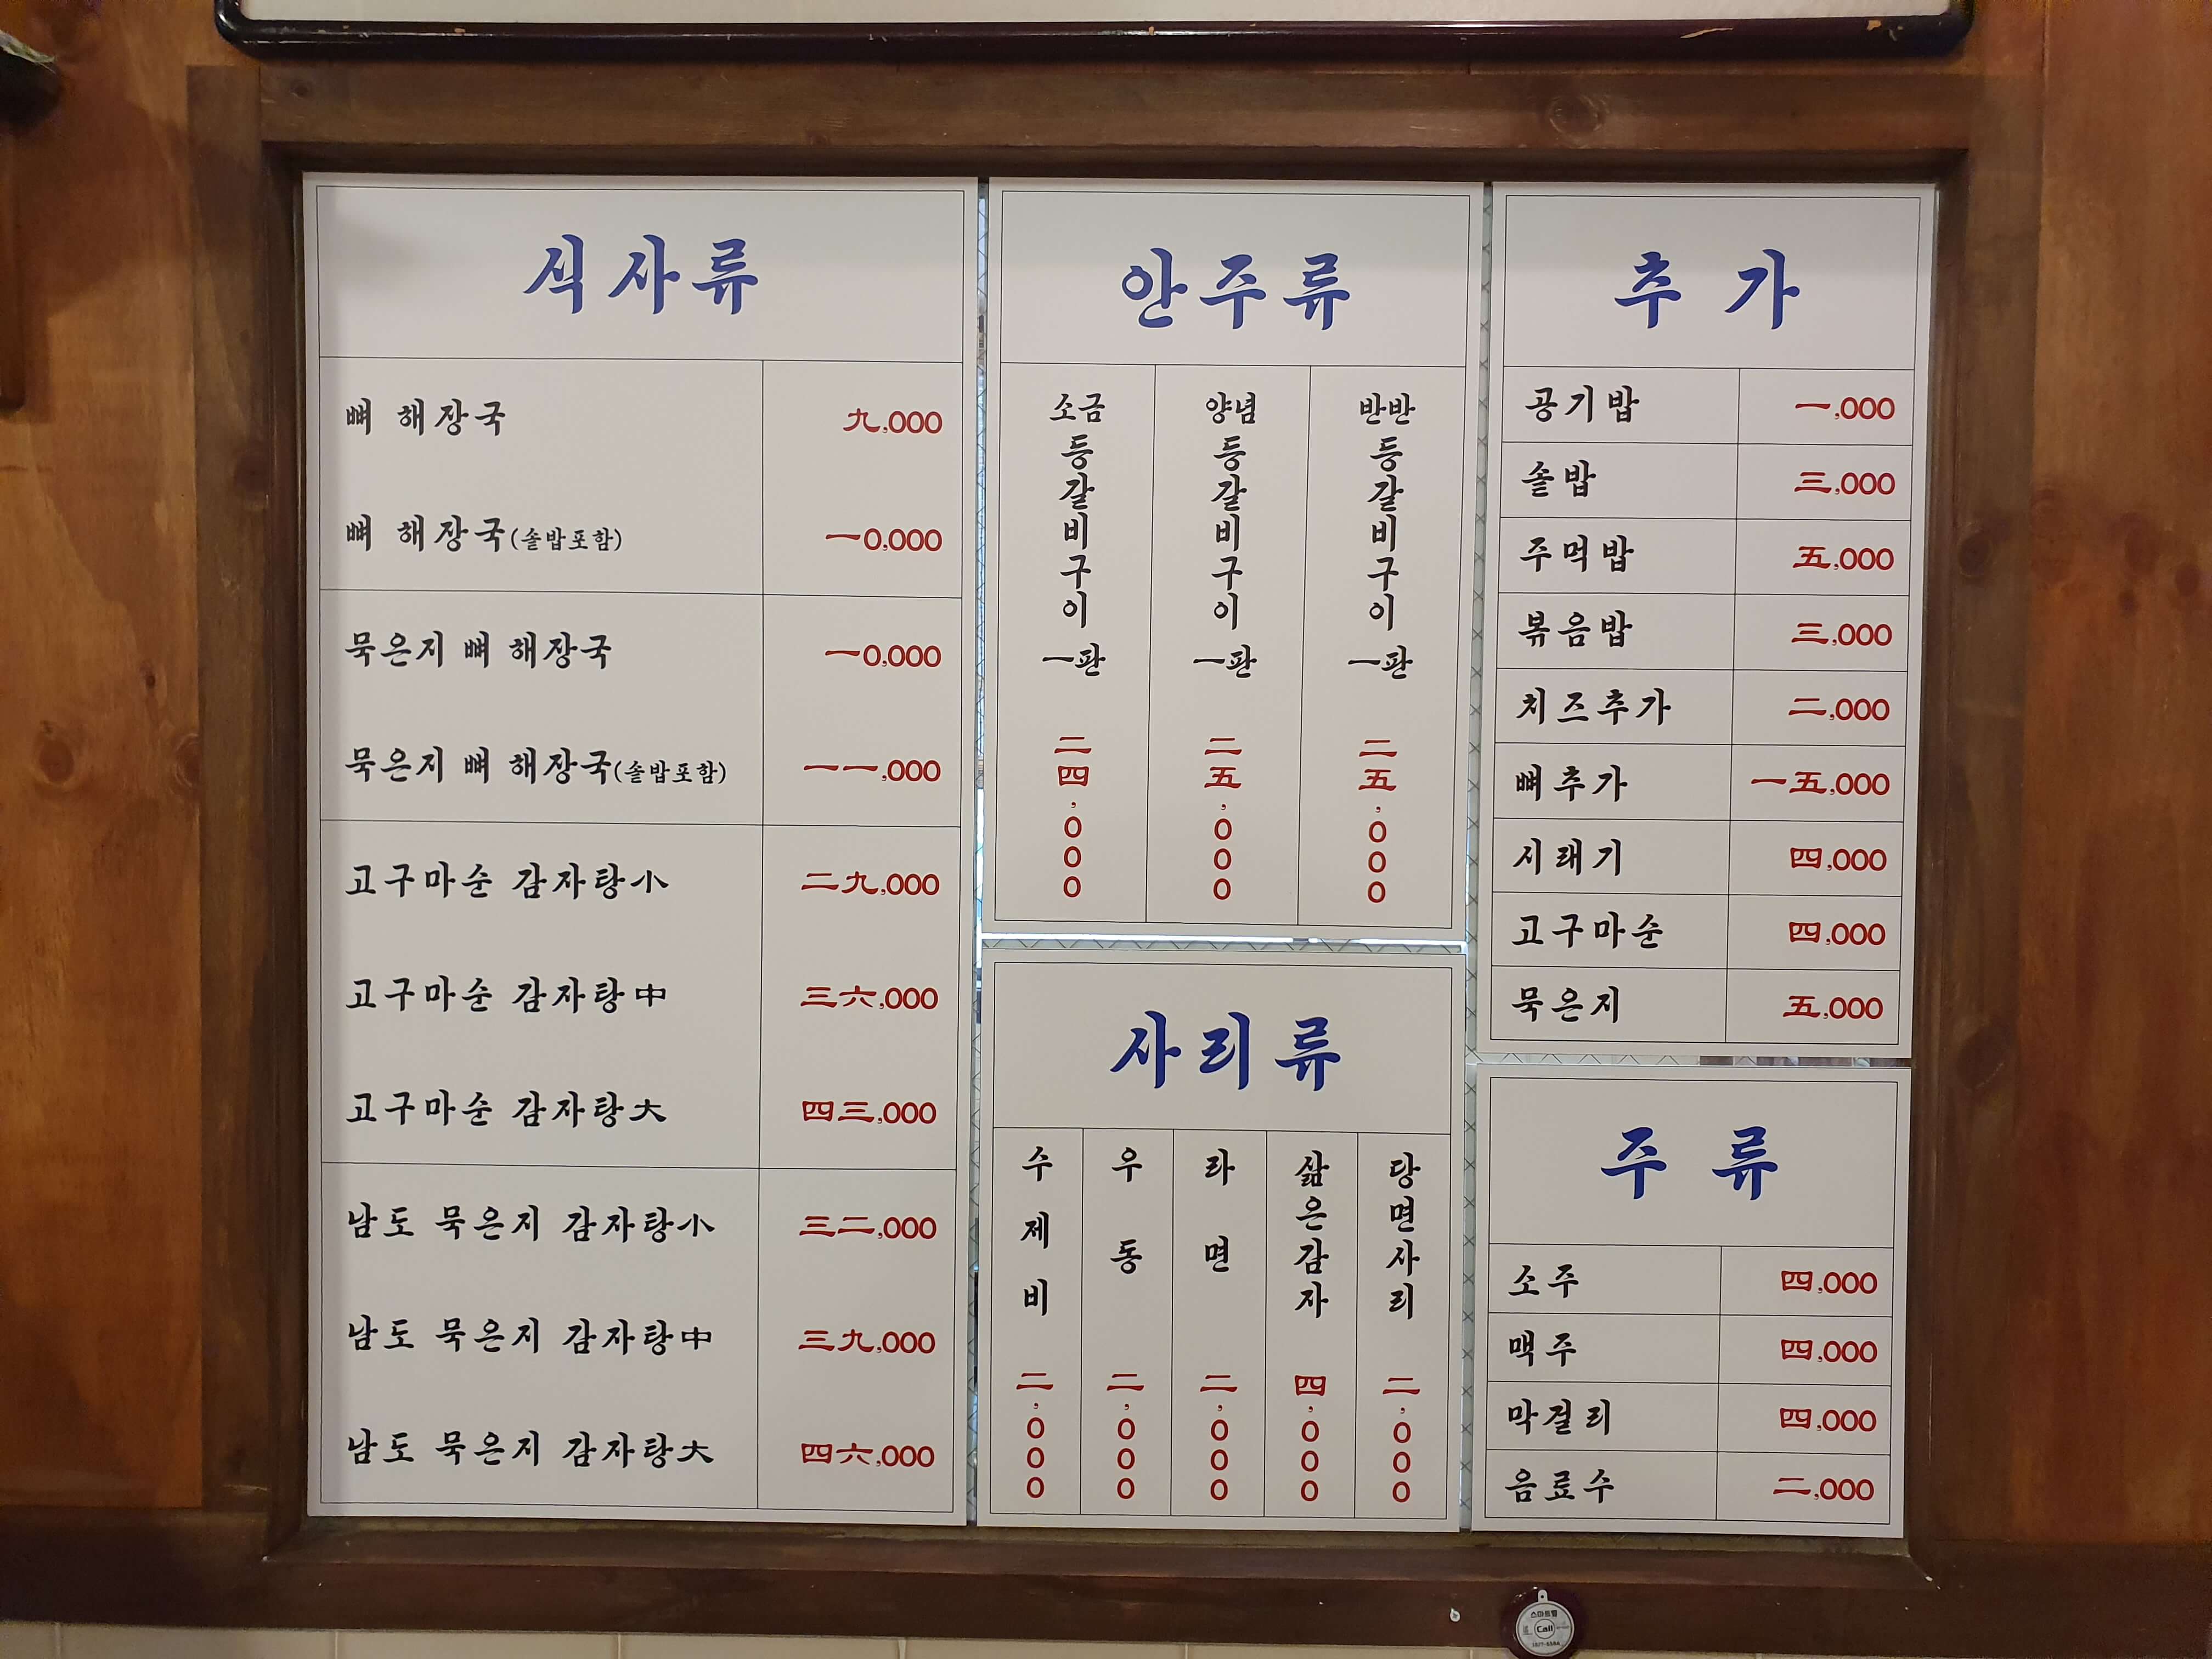 식사류
뼈 해장국 九,000
뼈 해장국(솥밥포함) 一0,000
묵은지 뼈 해장국 一0,000
묵은지 뼈 해장국(솥밥포함) 一一,000
고구마순 감자탕小 二九,000
고구마순 감자탕中 三六,000
고구마순 감자탕大 四三,000
남도 묵은지 감자탕小 三二,000
남도 묵은지 감자탕中 三九,000
남도 묵은지 감자탕大 四六,000
안주류
소금등갈비구이 一판 二四,000
양념등갈비구이 一판 二五,000
반반등갈비구이 一판 二五,000
사리류
수제비 二,000
우동 二,000
라면 二,000
삶은감자 四,000
당면사리 二,000
추 가
공기밥 一,000
솥밥 三,000
주먹밥 五,000
볶음밥 三,000
치즈추가 二,000
뼈추가 一五,000
시래기 四,000
고구마순 四,000
묵은지 五,000
주 류
소주 四,000
맥주 四,000
막걸리 四,000
음료수 二,000
스마트벨
Call